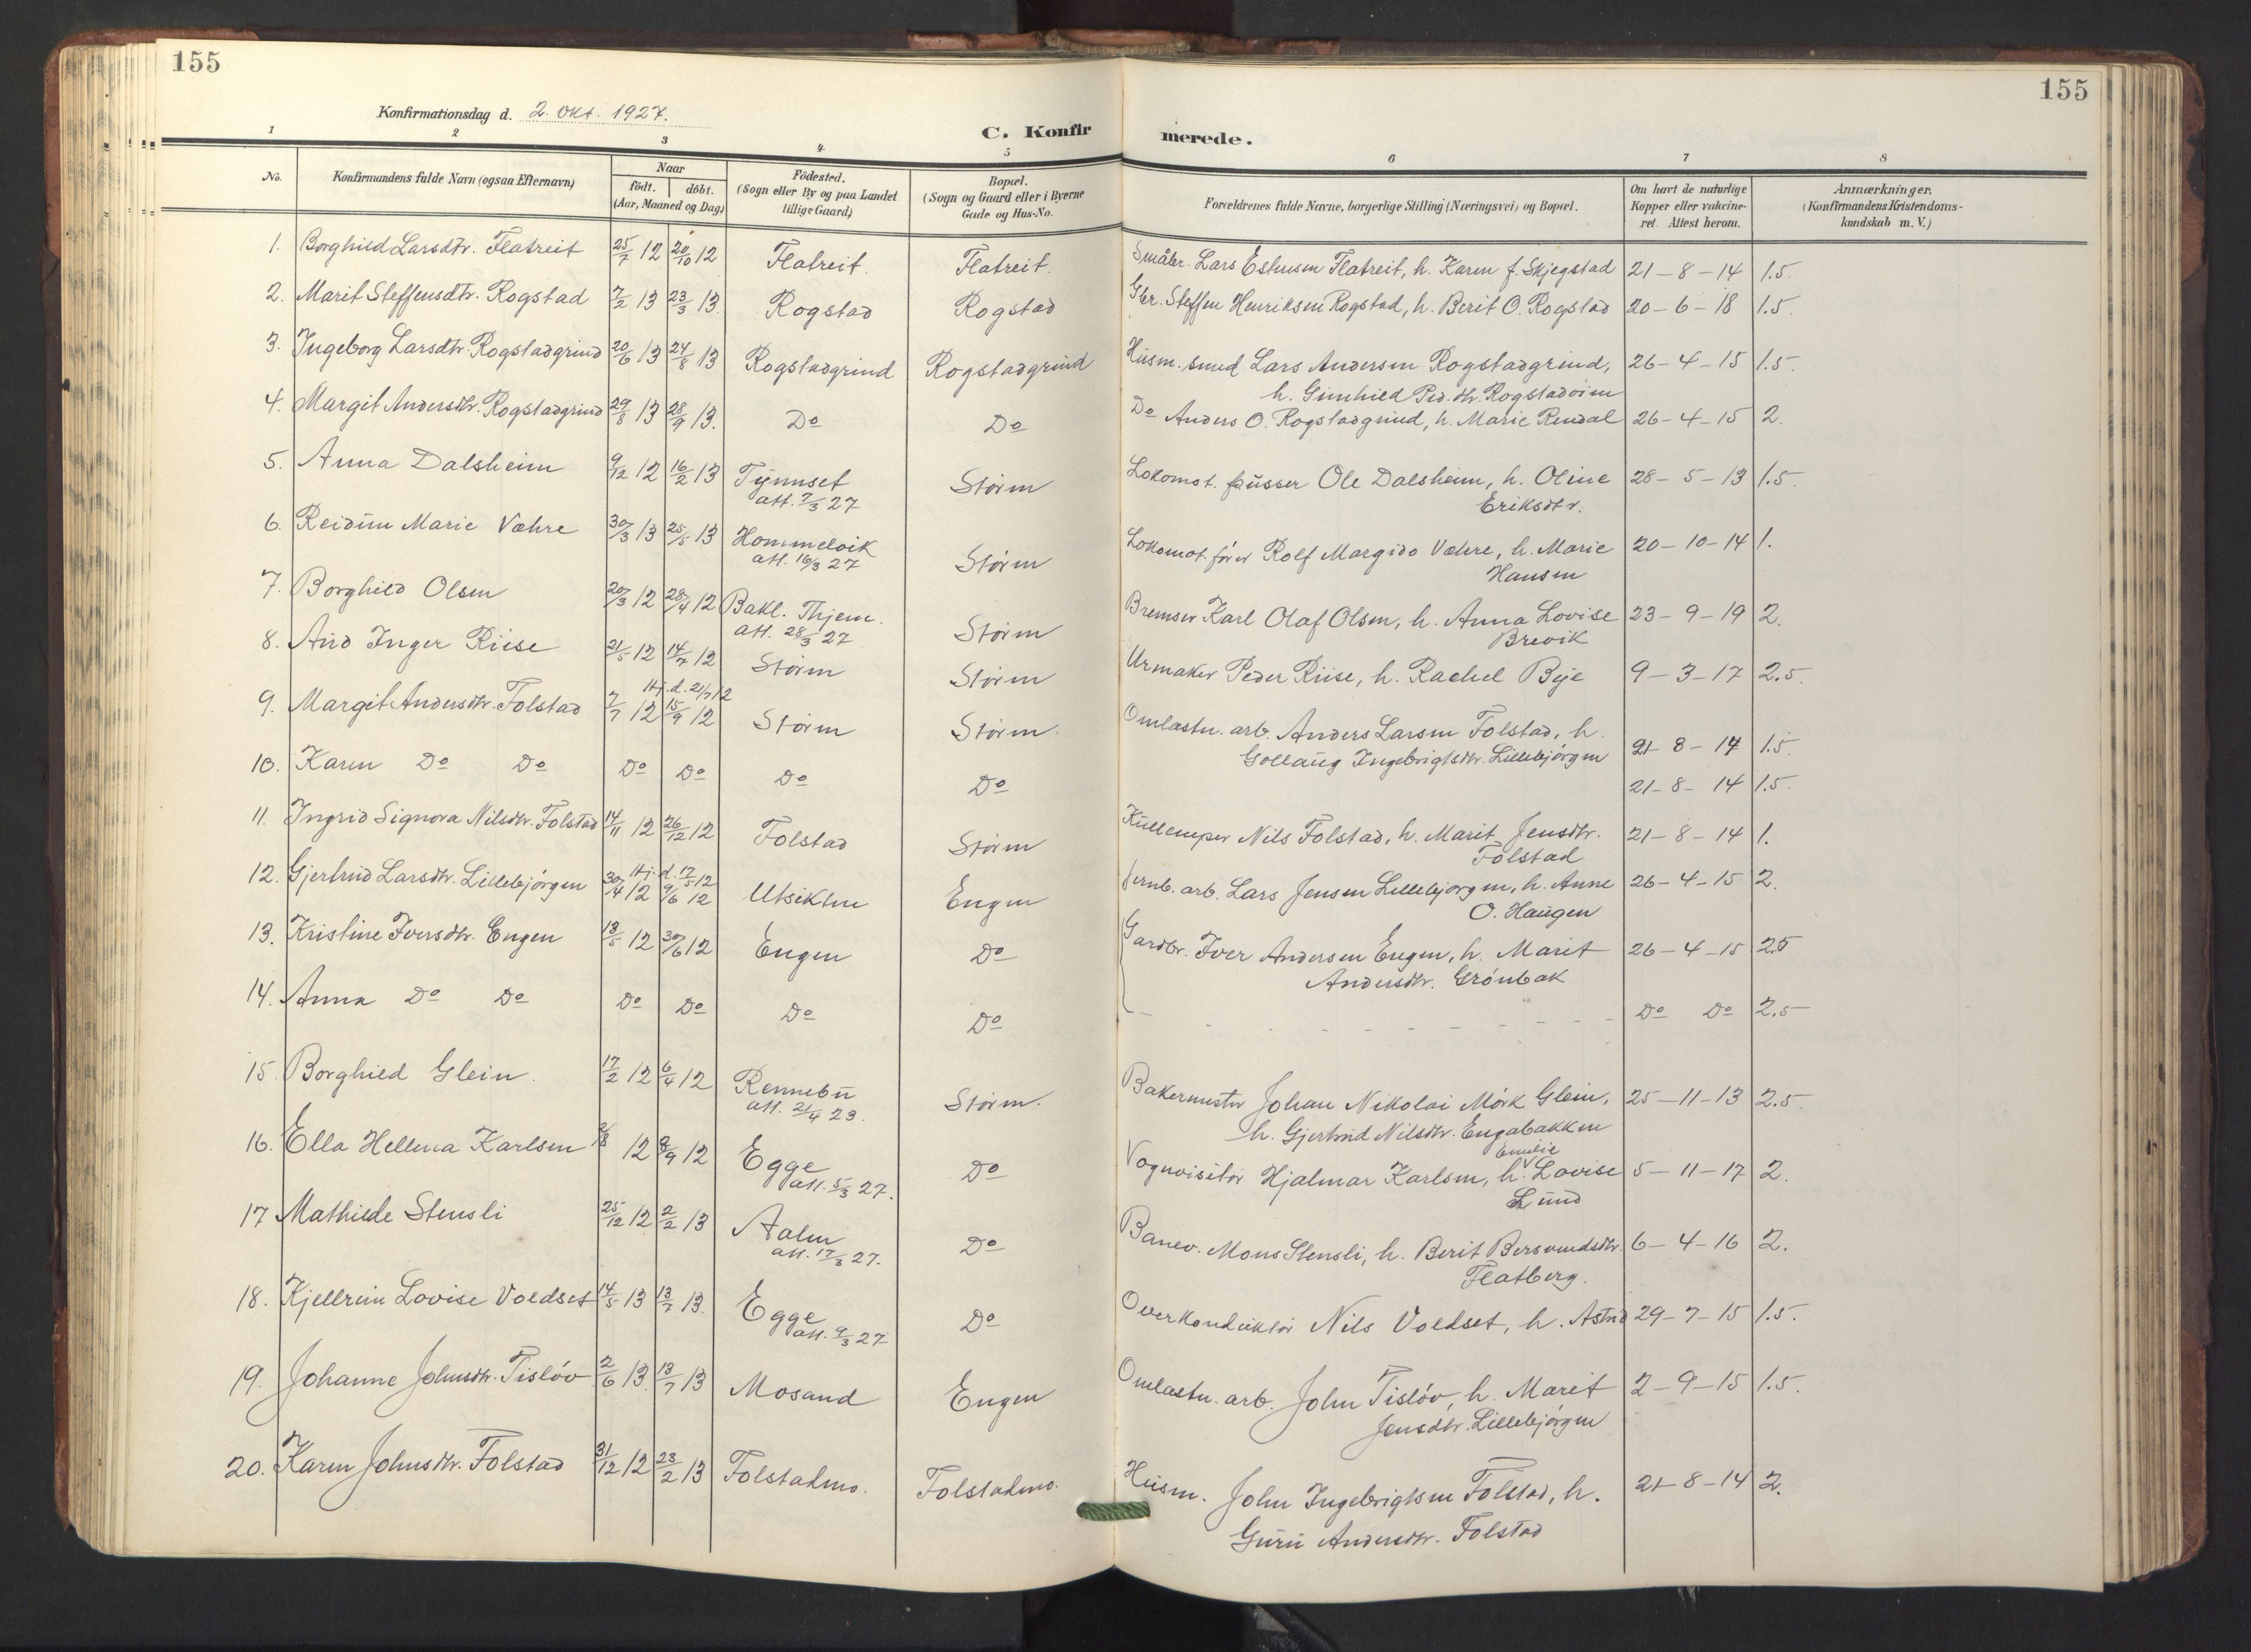 155
155
Konfirmationsdag d. 2. Okt. 1927.
C. Konfirmerede.
1 2 3 4 5 6 7 8
No. Konfirmandens fulde Navn (ogsaa Efternavn) Naar födt. döbt. (Aar, Maaned og Dag) Födested. (Sogn eller By og paa Landet tillige Gaard) Bopæl. (Sogn og Gaard eller i Byerne Gade og Hus-No. Forældrenes fulde Navne, borgerlige Stilling (Næringsvei) og Bopæl. Om havt de naturlige Kopper eller vakcineret Attest herom. Anmærkninger. (Konfirmandens Kristendomskundskab m. V.)
1. Borghild Larsdtr. Flatreit 25/7 12 20/10 12 Flatreit. Flatreit. Småbr. Lars Estensen Flatreit, h. Karen f. Skjegstad 21-8-14 1.5.
2. Marit Steffensdtr. Rogstad 7/2 13 23/3 13. Rogstad Rogstad Gbr. Steffen Henriksen Rogstad, h. Berit O. Rogstad 20-6-18 1.5.
3. Ingeborg Larsdtr. Rogstadgrind 20/6 13 24/8 13 Rogstadgrind Rogstadgrind Husm. smed Lars Andersen Rogstadgrind, 26-4-15 1.5.
h. Gunhild Ped.dtr. Rogstadöien
4. Margit Andersdtr. Rogstadgrind 29/8 13 28/9 13. Do Do Do Anders O. Rogstadgrind, h. Marie Rendal 26-4-15 2.
5. Anna Dalsheim 9/12 12 16/2 13 Tynnset Stören Lokomot. pusser Ole Dalsheim, h. Oline 28-5-13 1.5.
att. 7/3 27 Eriksdtr.
6. Reidun Marie Væhre 30/3 13 25/5 13 Hommelvik Stören Lokomot. förer Rolf Margido Væhre, h. Marie 20-10-14 1.
att. 16/3 27 Hansen
7. Borghild Olsen 20/3 12 28/4 12 Bakl. Thjem. Stören Bremser Karl Olaf Olsen, h. Anna Lovise 23-9-19 2.
att. 28/3 27 Brevik
8. Aud Inger Riise 21/5 12 14/7 12 Stören Stören Urmaker Peder Riise, h. Rachel Bye 9-3-17 2.5.
Hj. d. 21/7 12
9. Margit Andersdtr. Folstad 7/7 12 15/9 12 Stören Stören. Omlastn. arb. Anders Larsen Folstad, h.
Gollaug Ingebrigtsdtr. Lillebjörgen 21-8-14 1.5.
10. Karen Do Do Do Do Do Do 21-8-14 1.5.
11. Ingrid Signora Nilsdtr. Folstad 14/11 12 26/12 12 Folstad Stören Kullemper Nils Folstad, h. Marit Jensdtr. 21-8-14 1.
Folstad
Hj. d. 17/5 12
12. Gjertrud Larsdtr. Lillebjörgen 30/4 12 9/6 12 Utsikten Engen Jernb. arb. Lars Jensen Lillebjörgen, h. Anne 26-4-15 2.
O. Haugen
13. Kristine Iversdtr. Engen 13/5 12 30/6 12 Engen Do Gardbr. Iver Andersen Engen, h. Marit 26-4-15 2.5
Andersdtr. Grönbak
14. Anna Do Do Do Do Do Do - - - - - - - - - Do Do 2.5
15. Borghild Glein. 17/2 12 6/4 12 Rennebu Stören. Bakermester Johan Nikolai Mörk Glein, 25-11-13 2.5.
att. 21/4 23. h. Gjertrud Nilsdtr. Engabakken
16. Ella Hellena Karlsen 12 8/9 12 Egge Do Vognvisitör Hjalmar Karlsen, h. Emilie Lovise 5-11-17 2.
att. 5/3 27. Lund
17 Mathilde Stensli 25/12 12 2/2 13 Aalen Do Banev. Mons Stensli, h. Berit Bersvendsdtr. 6-4-16 2.
att. 17/3 27. Flatberg.
18. Kjellrun Lovise Voldset 14/5 13 13/7 13. Egge Do Overkonduktör Nils Voldset, h. Astrid 29-7-15 1.5.
att. 9/3 27
19. Johanne Johnsdtr. Tislöv 2/6 13. 13/7 13 Mosand Engen Omlastn. arb. John Tislöv, h. Marit 2-9-15 1.5.
Jensdtr. Lillebjörgen
20. Karen Johnsdtr. Folstad 31/12 12 23/2 13 Folstadmo. Folstadmo. Husm. John Ingebrigtsen Folstad, h. 21-8-14 2.
Guru Andersdtr. Folstad